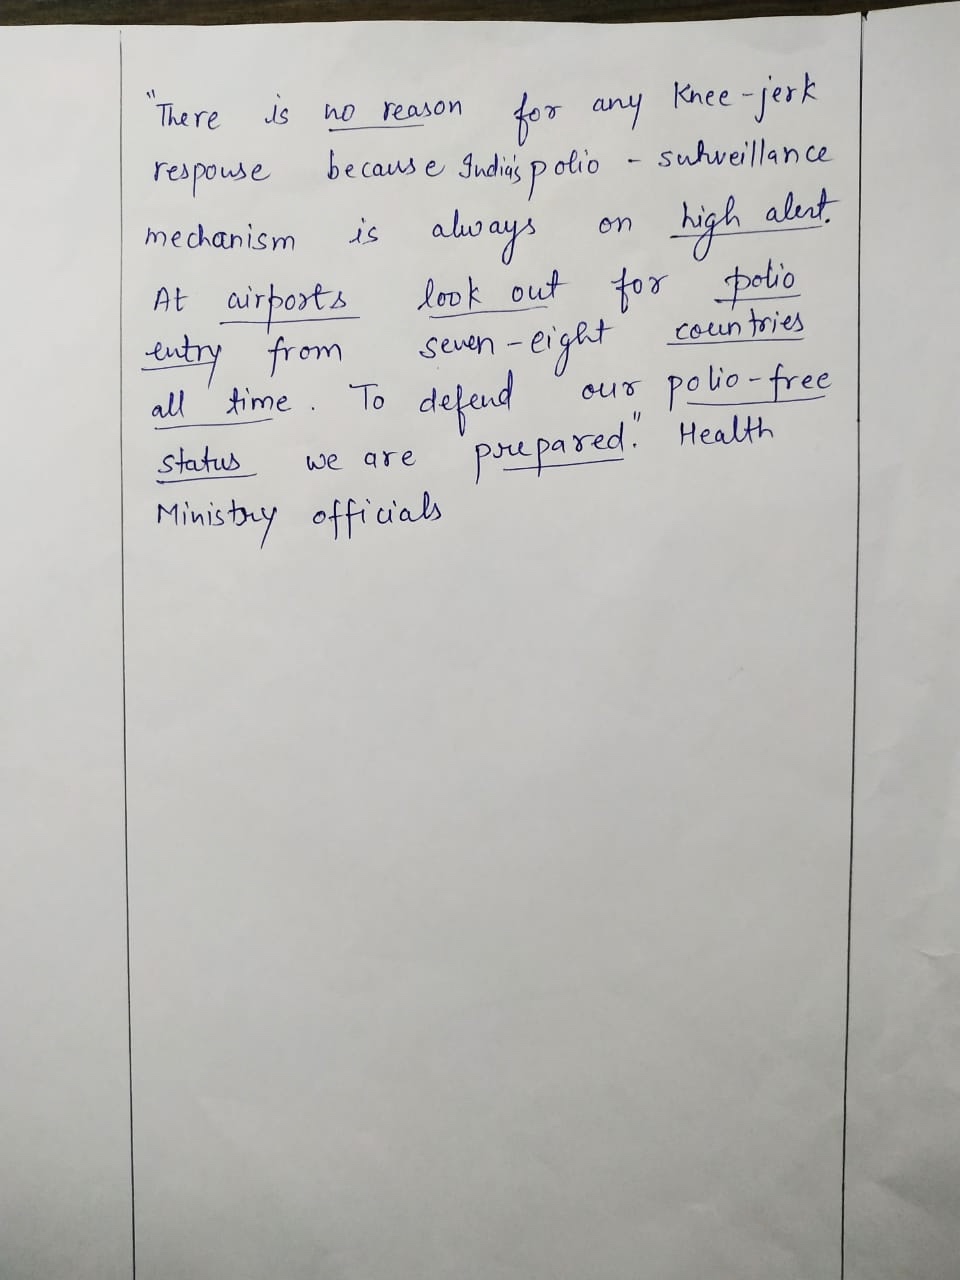 "There is no reason for any Knee-jerk
response because India's polio - surveillance
mechanism is always on high alert.
At airports look out for polio
entry from seven-eight countries
all time. To defend our polio-free
status we are prepared." Health
Ministry officials